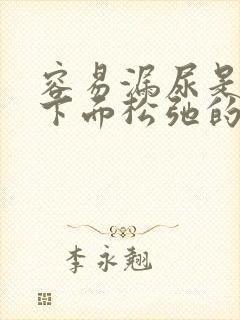 容易漏尿是
下面松弛的
李永翘